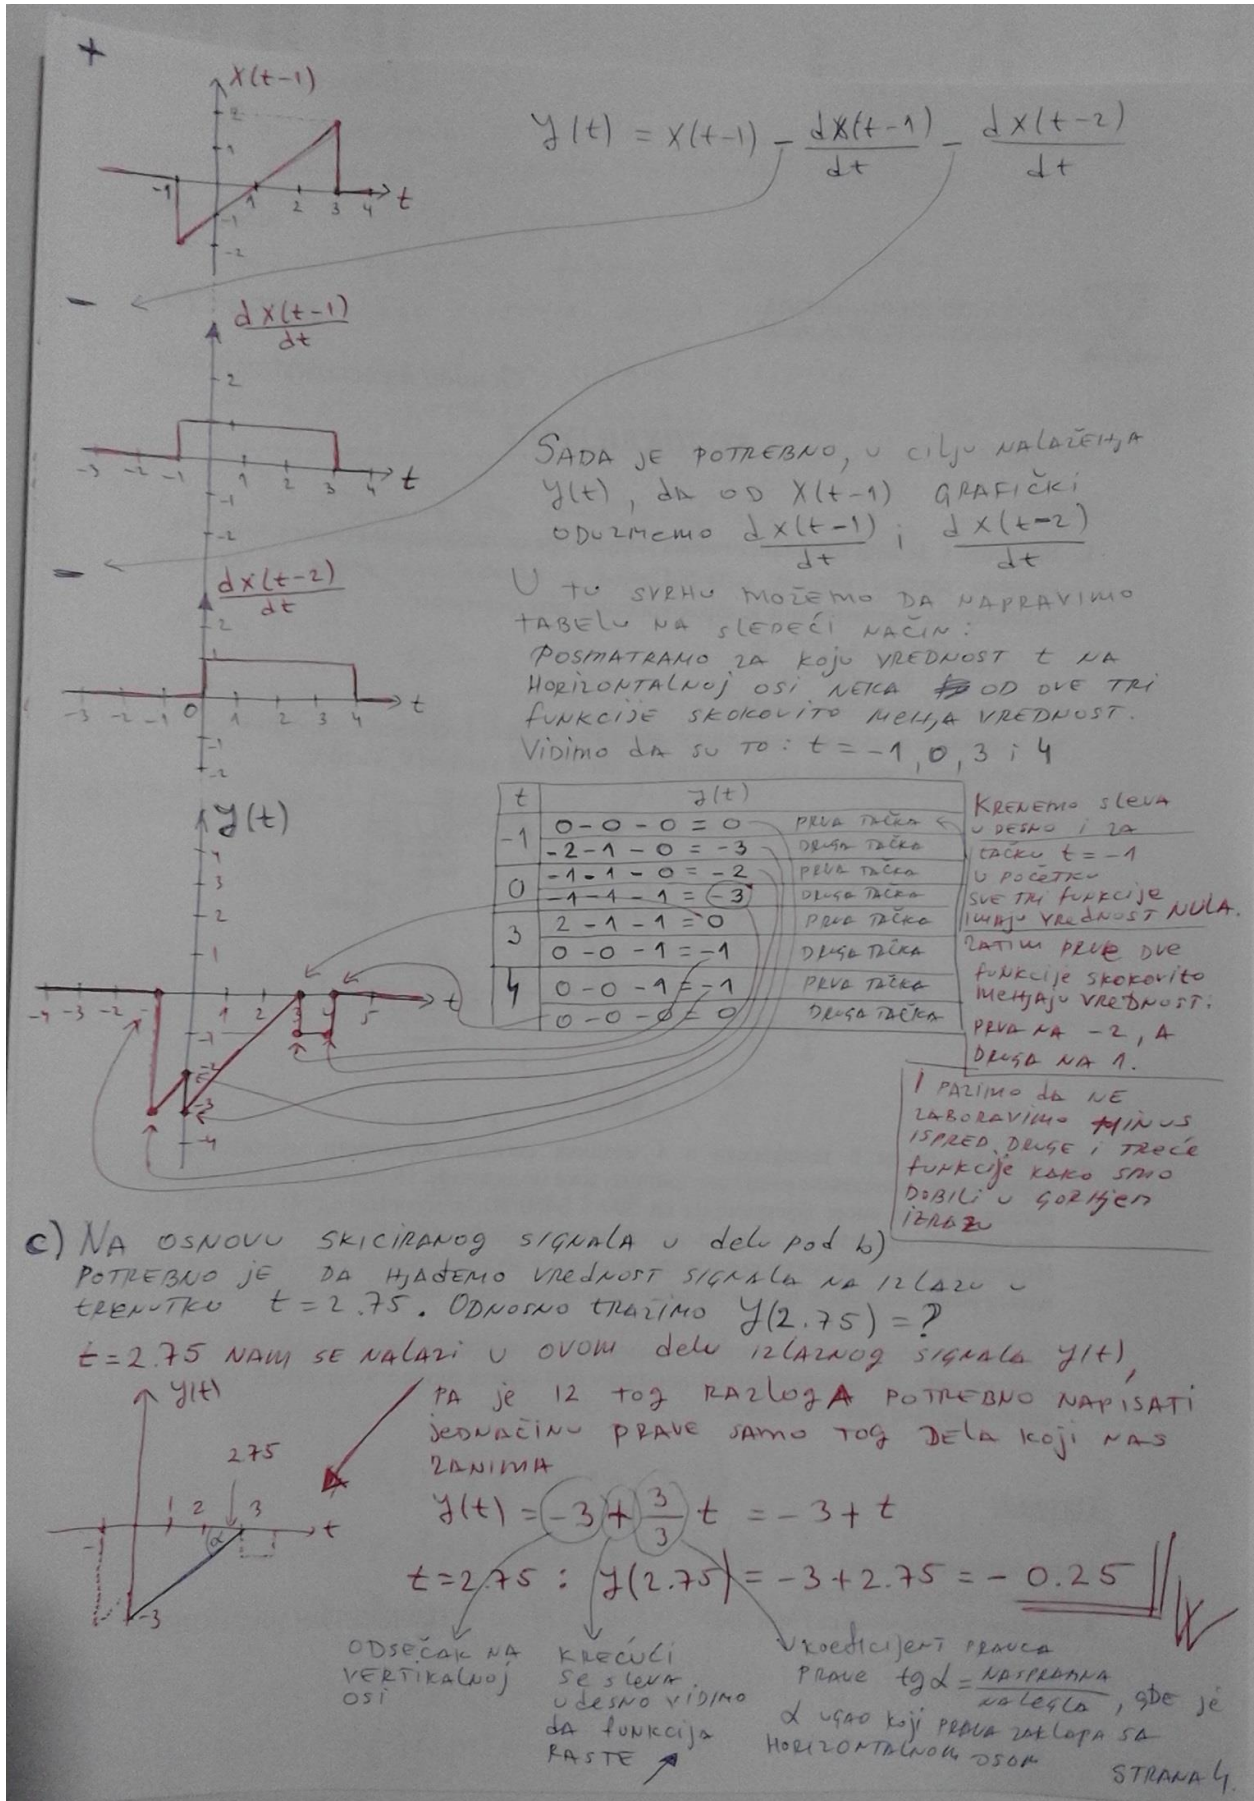 +
X(t-1)
2
1
-1 1 2 3 4 t
-1
-2
y(t) = X(t-1) - dX(t-1)/dt - dX(t-2)/dt
-
dX(t-1)/dt
2
-3 -2 -1 1 2 3 4 t
-1
-2
SADA JE POTREBNO, U CILJU NALAŽENJA
y(t), DA OD X(t-1) GRAFIČKI
ODUZMEMO dX(t-1)/dt i dX(t-2)/dt
-
dX(t-2)/dt
2
1
-3 -2 -1 0 1 2 3 4 t
-1
-2
U TU SVRHU MOŽEMO DA NAPRAVIMO
TABELU NA SLEDEĆI NAČIN:
POSMATRAMO ZA KOJU VREDNOST t NA
HORIZONTALNOJ OSI NEKA OD OVE TRI
FUNKCIJE SKOKOVITO MENJA VREDNOST.
VIDIMO DA SU TO: t = -1, 0, 3 i 4
t y(t)
-1 0-0-0=0 PRVA TAČKA
-2-1-0=-3 DRUGA TAČKA
0 -1-1-0=-2 PRVA TAČKA
-1-1-1=-3 DRUGA TAČKA
3 2-1-1=0 PRVA TAČKA
0-0-1=-1 DRUGA TAČKA
4 0-0-1=-1 PRVA TAČKA
0-0-0=0 DRUGA TAČKA
KRENEMO SLEVA
UDESNO I ZA
TAČKU t=-1
U POČETKU
SVE TRI FUNKCIJE
IMAJU VREDNOST NULA.
ZATIM PRVE DVE
FUNKCIJE SKOKOVITO
MENJAJU VREDNOST:
PRVA NA -2, A
DRUGA NA 1.
I PAZIMO DA NE
ZABORAVIMO MINUS
ISPRED DRUGE I TREĆE
FUNKCIJE KAKO SMO
DOBILI U GORNJEM
IZRAZU
y(t)
4
3
2
1
-4 -3 -2 -1 1 2 3 4 5 t
-1
-2
-3
-4
c) NA OSNOVU SKICIRANOG SIGNALA U DELU POD b)
POTREBNO JE DA NJAĐEMO VREDNOST SIGNALA NA IZLAZU U
TRENUTKU t=2.75. ODNOSNO TRAŽIMO y(2.75)=?
t=2.75 NAM SE NALAZI U OVOM DELU IZLAZNOG SIGNALA y(t),
PA JE IZ TOG RAZLOGA POTREBNO NAPISATI
JEDNAČINU PRAVE SAMO TOG DELA KOJI NAS
ZANIMA
y(t)
2.75
-1 1 2 3 t
α
-3
y(t) = -3 + 3/3 t = -3 + t
t=2.75 : y(2.75) = -3+2.75 = -0.25
ODSEČAK NA
VERTIKALNOJ
OSI
KREĆUĆI
SE SLEVA
UDESNO VIDIMO
DA FUNKCIJA
RASTE
KOEFICIJENT PRAVCA
PRAVE tgα = NASPRAMNA/NALEGLA, GDE JE
α UGAO KOJI PRAVA ZAKLAPA SA
HORIZONTALNOM OSOM
STRANA 4.